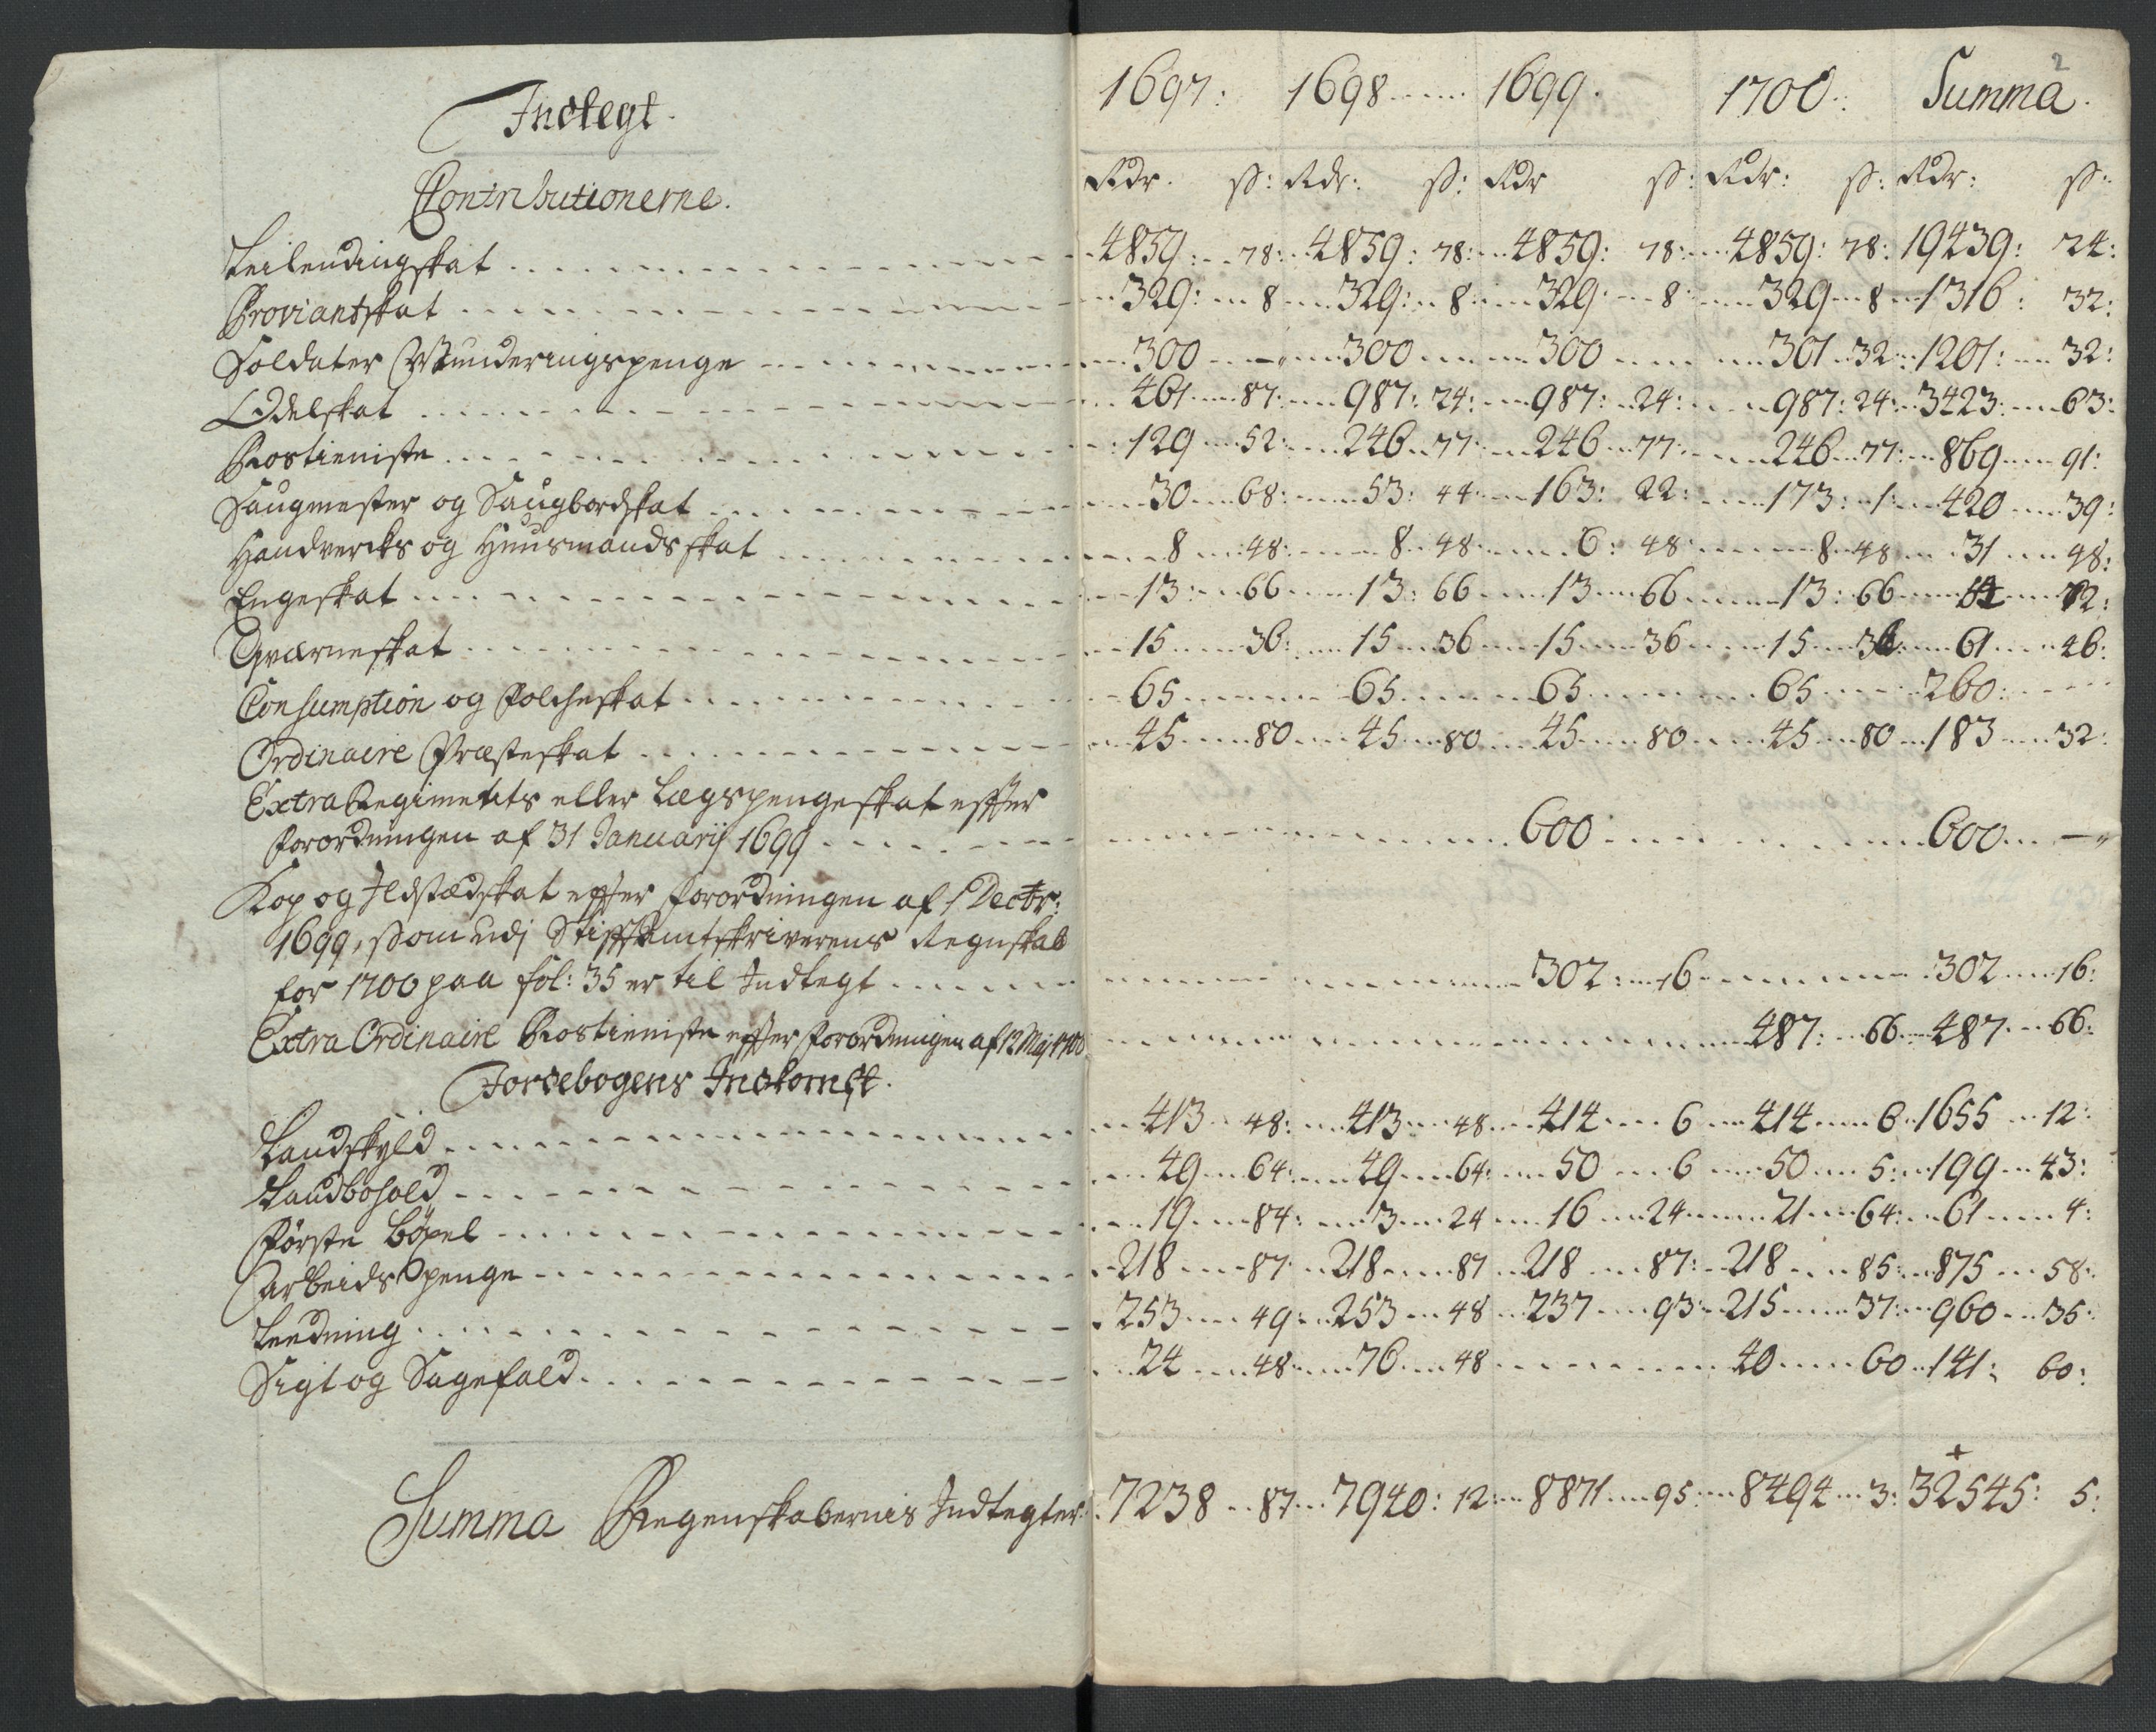 2
Indtegt. 1697: 1698 1699. 1700: Summa.
Contributionerne. Rdr. ß: Rdr: ß: Rdr ß: Rdr: ß: Rdr: ß:
Leilendingskat 4859: 78: 4859: 78: 4859: 78: 4859: 78: 19439: 24:
Proviantskat 329: 8 329: 8: 329: 8: 329 8 1316: 32:
Soldater Munderingspenge 300 — 300 300 301 32: 1201: 32:
Odelskat 461 87: 987: 24: 987: 24: 987: 24: 3423: 63:
Rostieniste 129 52: 246 77: 246 77: 246 77: 869 91:
Saugmester og Saugbordskat 30 68: 53: 44: 163: 22: 173: 1: 420 39:
Handvercks og Huusmands skat 8 48: 8 48 6: 48: 8 48 31 48:
Engeskat 13: 66 13: 66 13 66 13: 66 54 72:
Qværneskat 15 36: 15 36 15 36 15 36: 61 46:
Consumption og Folcheskat 65 65 65 65 260:
Ordinaire Præsteskat 45 80 45 80 45 80 45 80 183 32:
Extra Regimetits eller Lægspengeskat effter
Forordningen af 31 Januarij 1699 600 600 —
Kop og Ildstædskat effter Forordningen af 1 Dectr:
1699, som udj Stifftamtskriverens Regnskab
for 1700 paa fol: 35 er til Indtegt 302: 16 302 16:
Extra Ordinaire Rostieniste effter Forordningen af 12 Maj 1700 487: 66 487 66:
Jordebogens Indkomst.
Landskyld 413 48: 413 48 414 6 414 6 1655 12:
Landbohold 49 64: 49 64: 50 6 50 5: 199 43:
Første Böxel 19 84: 3 24 16 24 21 64: 61 4:
Arbeids Penge 218 87 218 87 218 87: 218 85: 875 58:
Leedning 253 49: 253 48 237 93: 215 37: 960 35:
Sigt og Sagefald 24 48 76 48 40 60 141: 60:
Summa Regenskabernis Indtegter: 7238 87 7940: 12: 8871 95: 8494 3: 32545: 5: